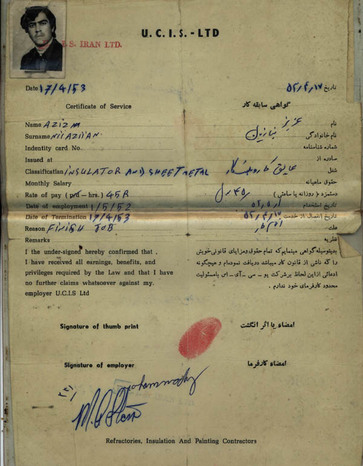 U.C.I.S.-LTD
S. IRAN LTD.
Date 17/4/53
Certificate of Service
گواهی سابقه کار
Name AZIZ
نام عزیز
Surname NIYAZIYAN
نام خانوادگی
Indentity card No.
شماره شناسنامه
Issued at
صادره از
Classification INSULATOR AND SHEET METAL
شغل
Monthly Salary
حقوق ماهیانه
Rate of pay ( hrs) 45R
دستمزد ( روزانه یا ساعتی )
Date of employment 1/5/52
تاریخ استخدام
Date of Termination 17/4/53
تاریخ انفصال از خدمت
Reason FINISH JOB
علت
Remarks
نظریه
I the under-signed hereby confirmed that .
I have received all earnings, benefits, and
privileges required by the Law and that I have
no further claims whatsoever against my.
employer U.C.I.S Ltd
بدینوسیله گواهی مینمایم که تمام حقوق و مزایای قانونی خویش
را که ناشی از قانون کار میباشد دریافت نموده‌ام و هیچگونه
ادعائی از این لحاظ بر شرکت یو - سی - آی - اس با مسئولیت
محدود کارفرمای خود ندارم .
Signature of thumb print
امضاء یا اثر انگشت
Signature of employer
امضاء کارفرما
Refractories, Insulation And Painting Contractors